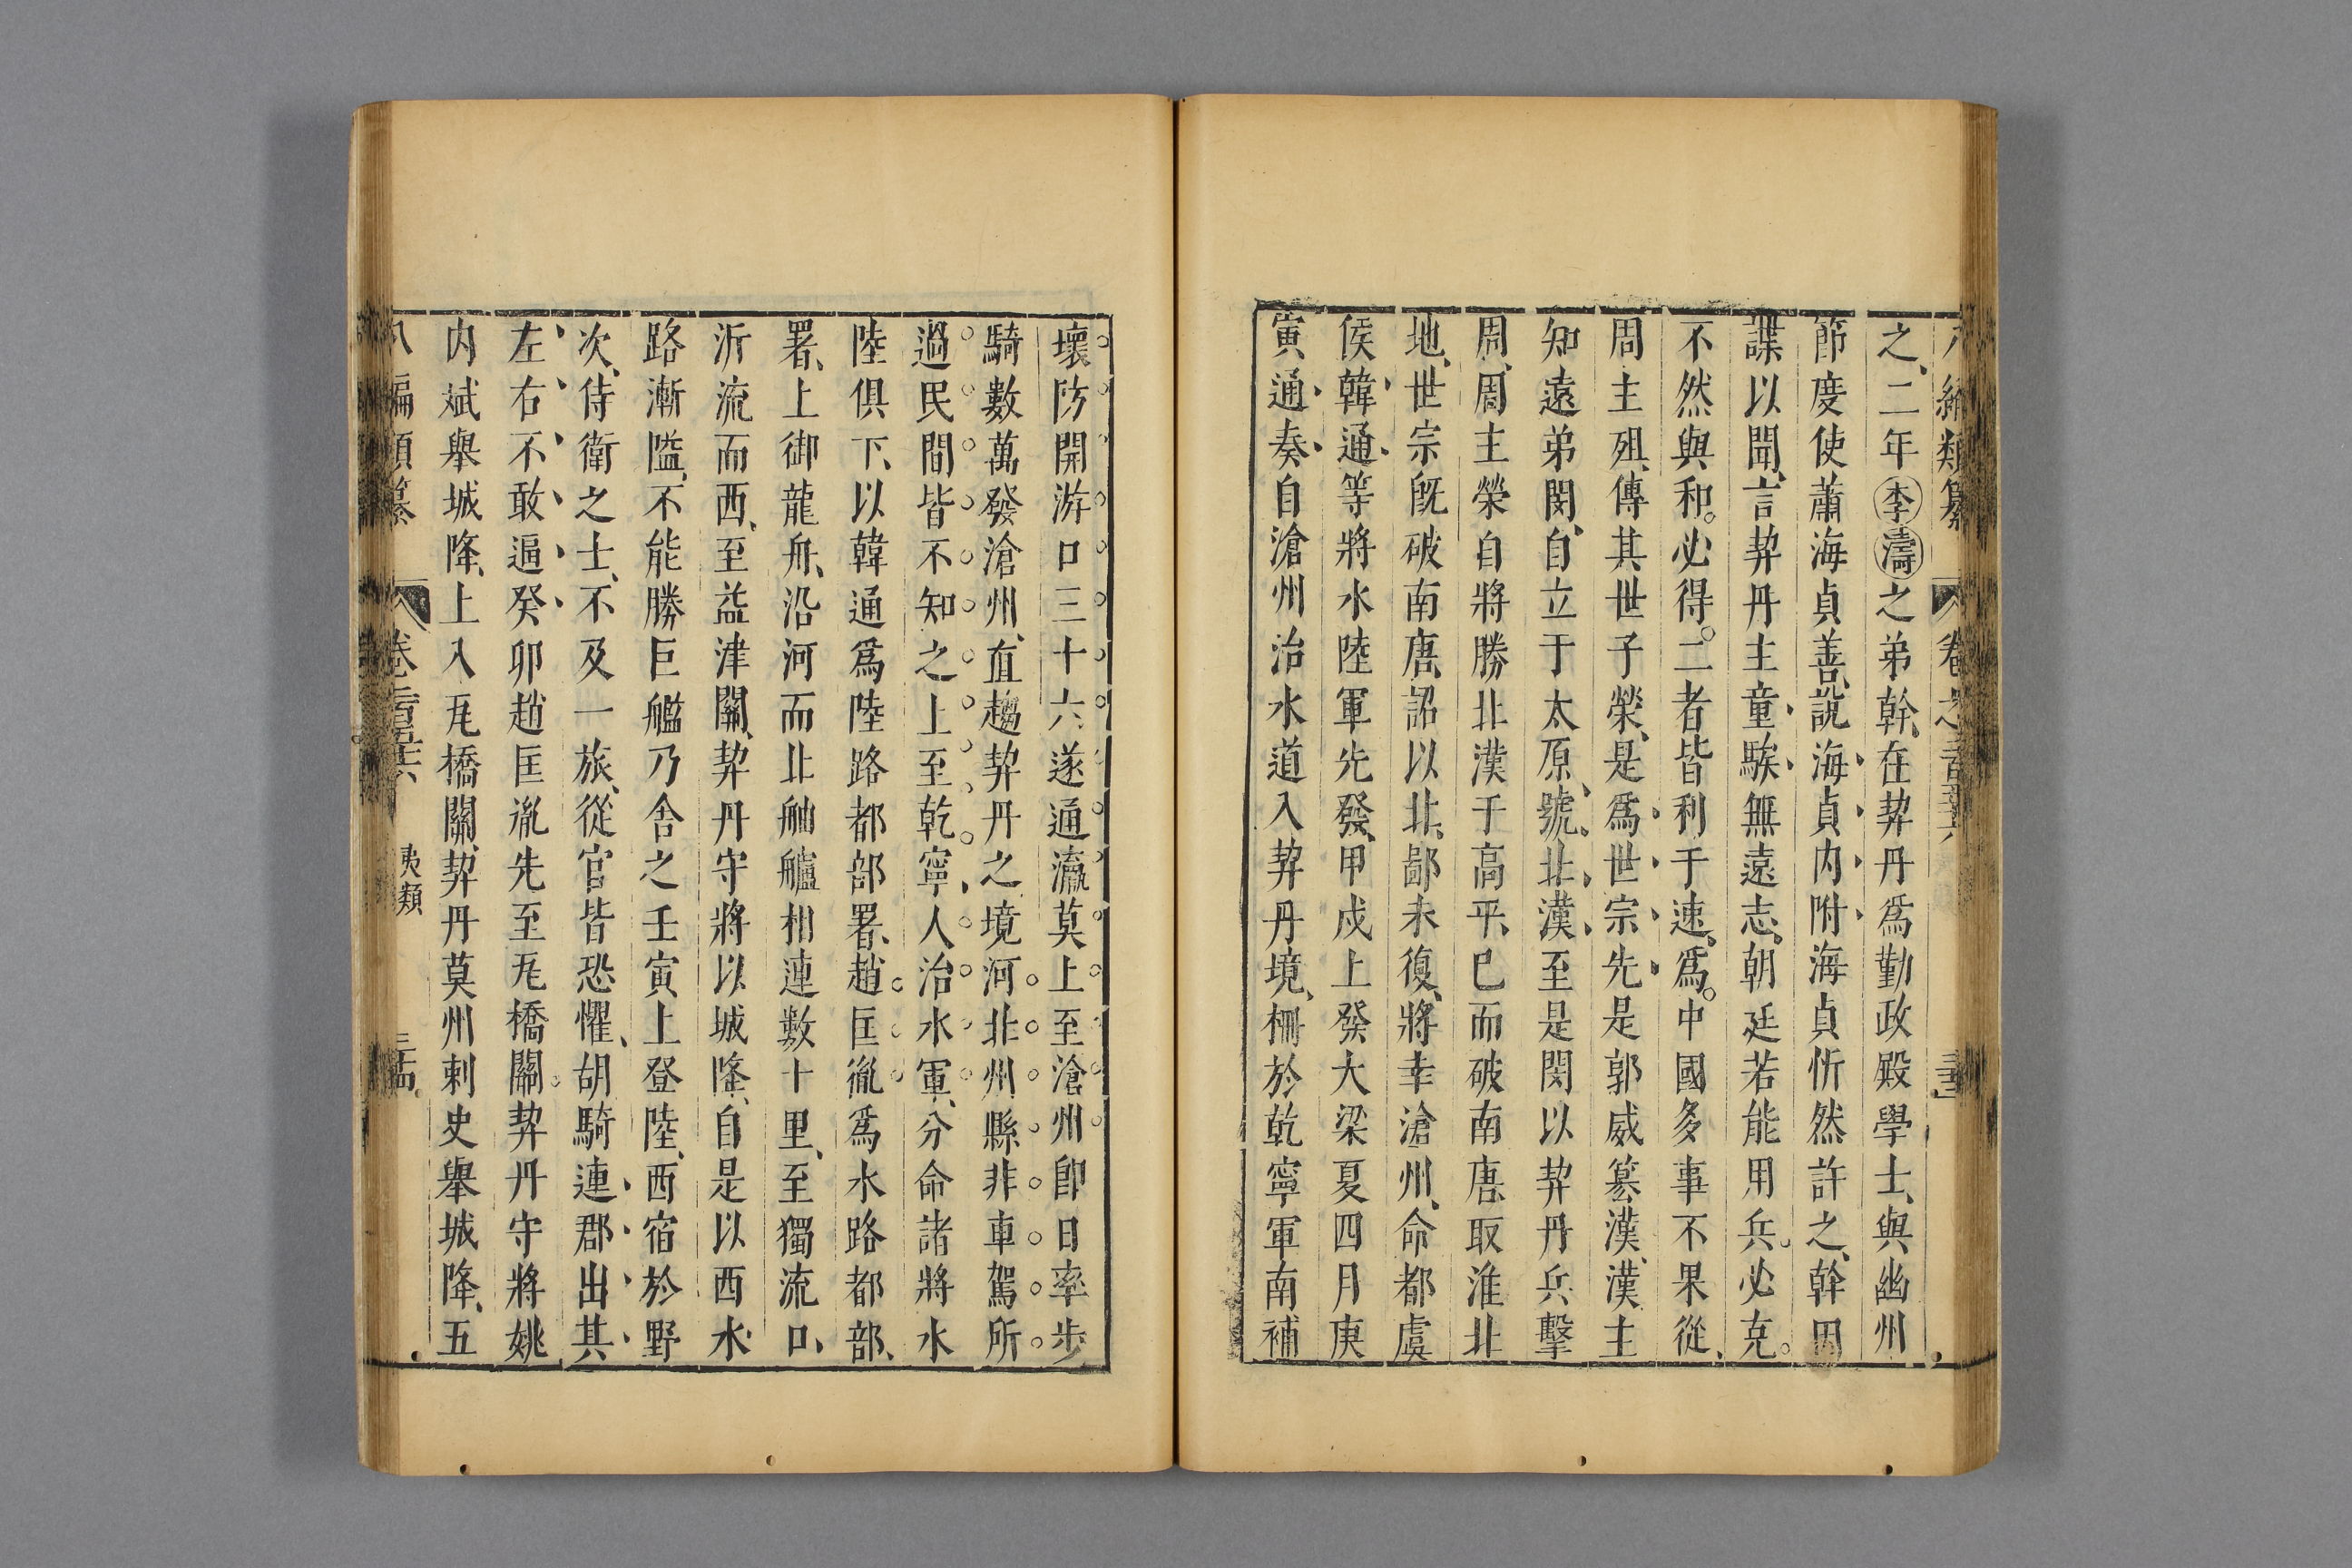 編類纂 卷之
之二年李濤之弟幹在契丹爲勤政殿學士與幽州
節度使蕭海貞善説海貞内附海貞忻然許之幹因
諜以聞言契丹主童騃無遠志朝廷若能用兵必克
不然與和必得二者皆利于速爲中國多事不果從
周主殂傳其世子榮是爲世宗先是郭威簒漢漢主
知遠弟閔自立于太原號北漢至是閔以契丹兵擊
周周主榮自將勝北漢于高平已而破南唐取淮北
地世宗旣破南唐詔以北鄙未復將幸滄州命都虞
侯韓通等將水陸軍先發甲戍上發大梁夏四月庚
寅通奏自滄州治水道入契丹境柵於乾寧軍南補
壞防開游口三十六遂通瀛莫上至滄州卽日率步
騎數萬發滄州直趨契丹之境河北州縣非車駕所
過民間皆不知之上至乾寧人治水軍分命諸將水
陸俱下以韓通爲陸路都部署趙匡胤爲水路都部
署上御龍舟沿河而北舳艫相連數十里至獨流口
泝流而西至益津關契丹守將以城降自是以西水
路漸隘不能勝巨艦乃舍之壬寅上登陸西宿於野
次侍衛之士不及一旅從官皆恐懼胡騎連郡出其
左右不敢逼癸卯趙匡胤先至瓦橋關契丹守將姚
内斌舉城降上入瓦橋關契丹莫州刺史舉城降五
八編類纂 卷 夷類